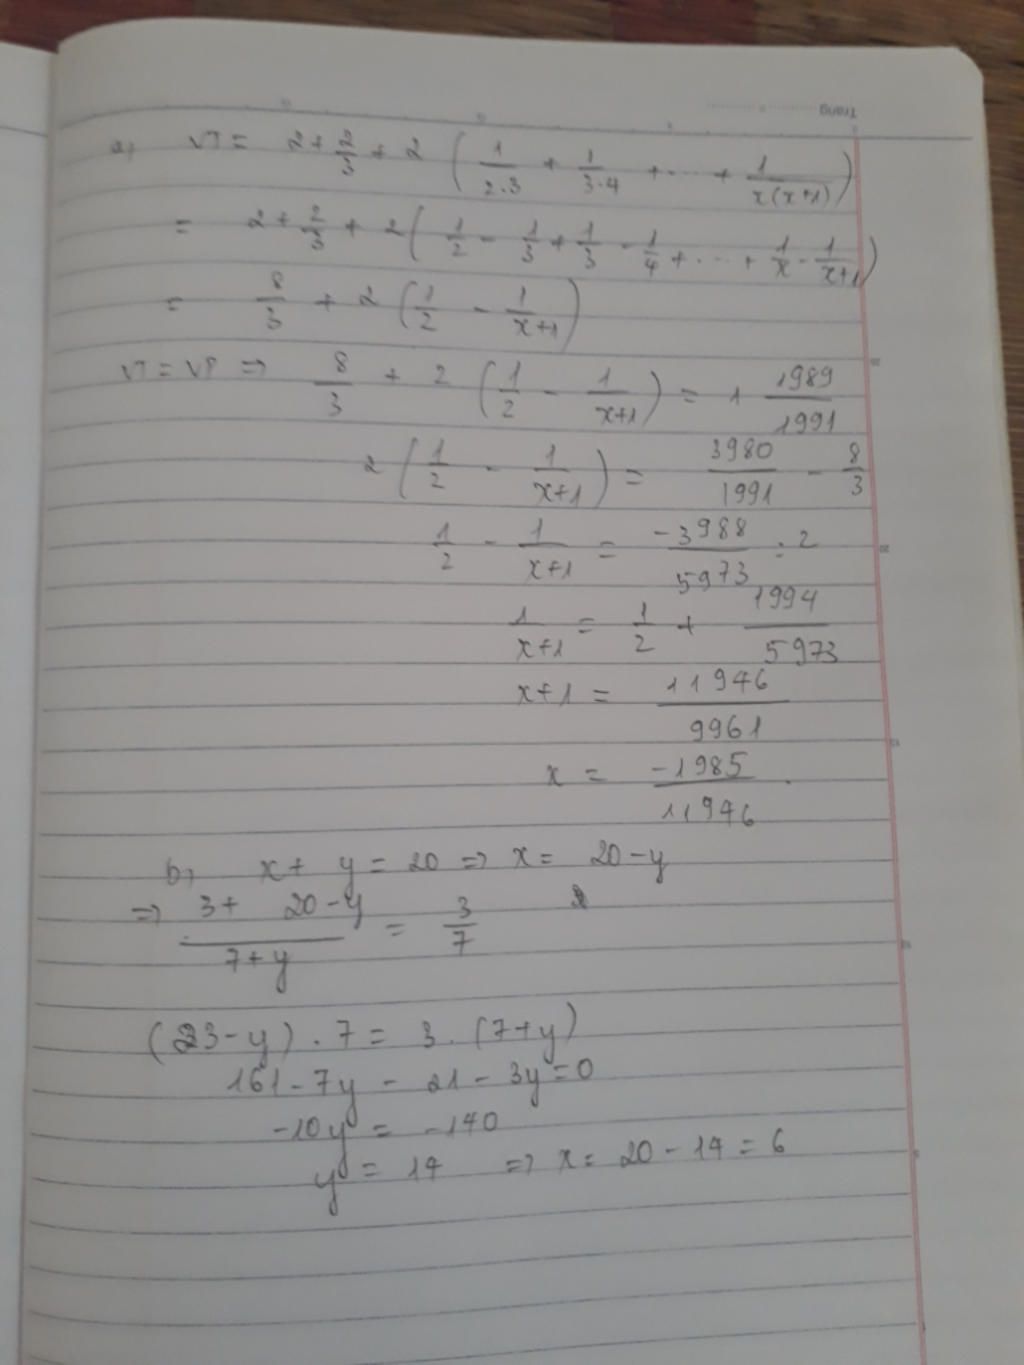 Trang
a, VT = 2 + 2/3 + 2 (1/2.3 + 1/3.4 + ... + 1/x(x+1))
= 2 + 2/3 + 2 (1/2 - 1/3 + 1/3 - 1/4 + ... + 1/x - 1/x+1)
= 8/3 + 2 (1/2 - 1/x+1)
VT = VP => 8/3 + 2 (1/2 - 1/x+1) = 1 1989/1991
2 (1/2 - 1/x+1) = 3980/1991 - 8/3
1/2 - 1/x+1 = -3988/5973 : 2
1/x+1 = 1/2 + 1994/5973
x+1 = 11946/9961
x = -1985/11946
b, x + y = 20 => x = 20 - y
=> 3 + 20 - y/7 + y = 3/7
(23 - y) . 7 = 3 . (7 + y)
161 - 7y - 21 - 3y = 0
-10y = -140
y = 14 => x = 20 - 14 = 6